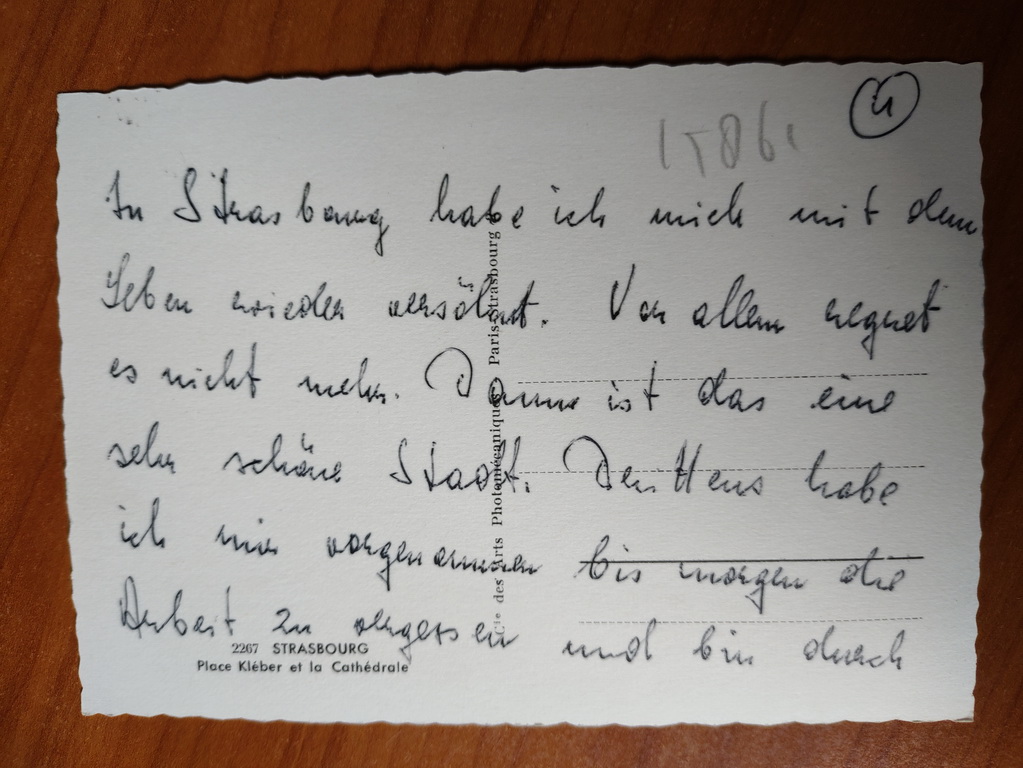 4
1586,
In Strasbourg habe ich mich mit dem
Leben wieder versöhnt. Vor allem regnet
es nicht mehr. Dann ist das eine
sehr schöne Stadt. Drittens habe
ich mir vorgenommen bis morgen die
Arbeit zu vergessen und bin durch
Cie des Arts Photomécaniques Paris-Strasbourg
2267 STRASBOURG
Place Kléber et la Cathédrale